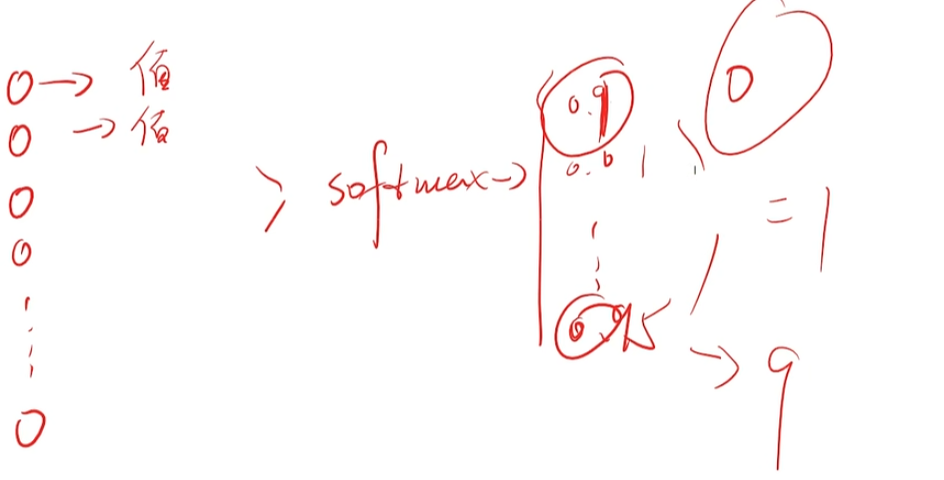 0 → 值
0 → 值
0
0
0
softmax →
0.9
0.01
0.95
0
= 1
→ 9